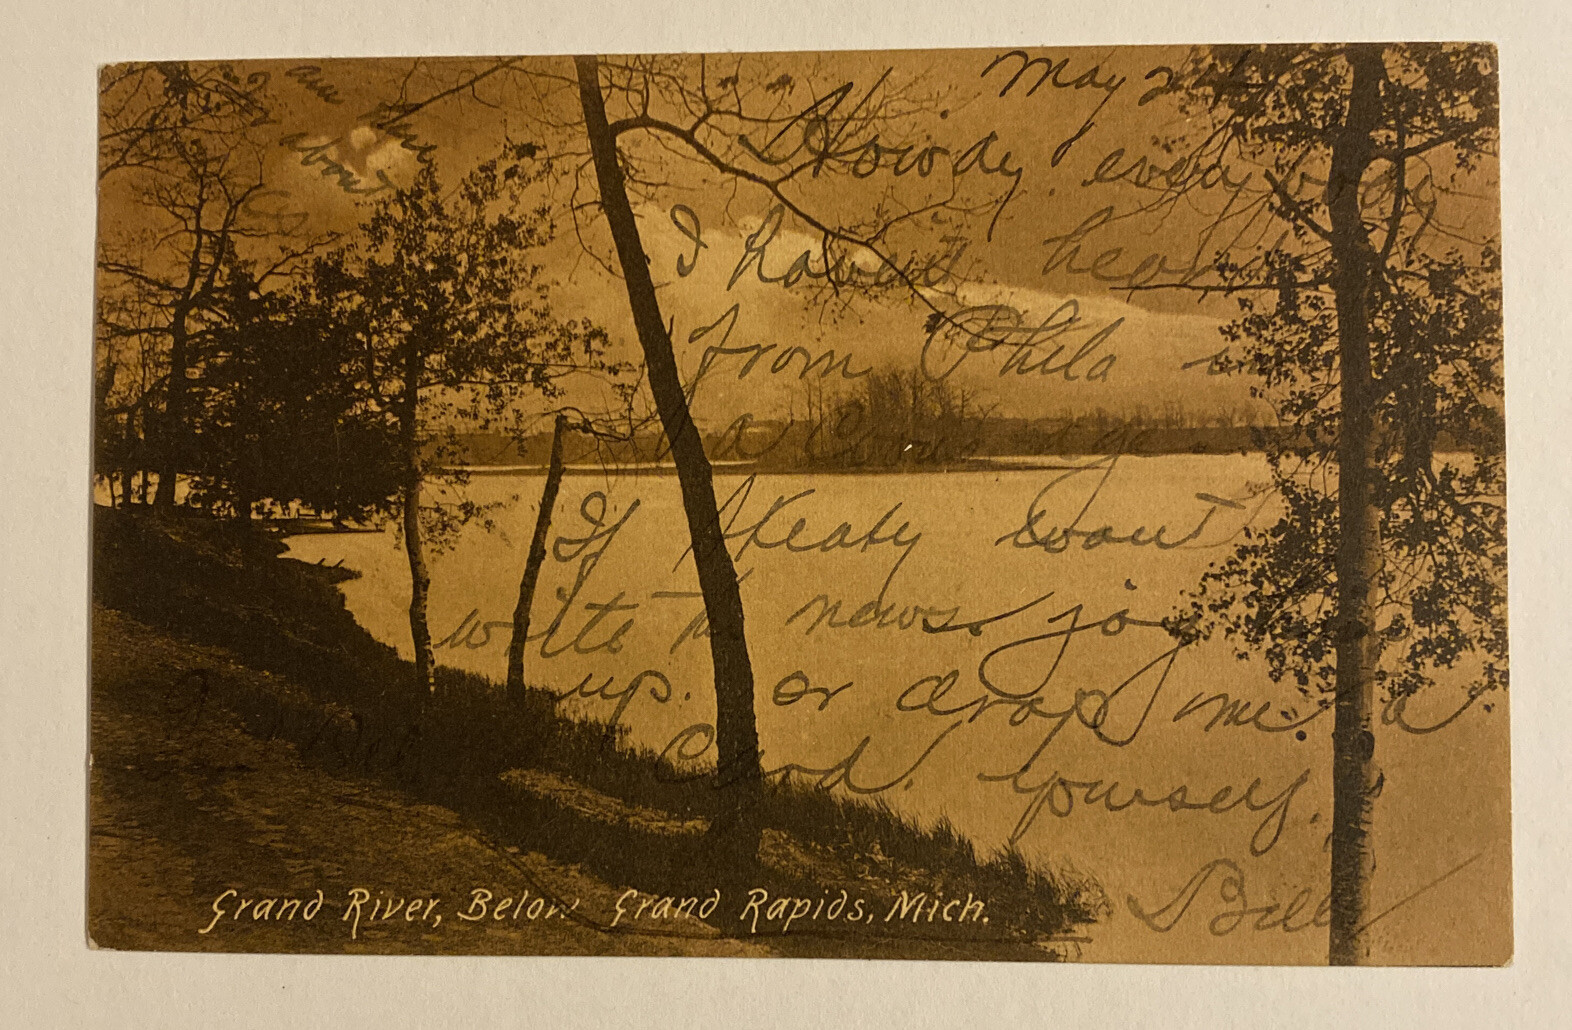 May 24
Howdy everybody
I haven't heard
from Phila in
a coons age
If Keaty wont
write the news, jog her
up. or drop me a
Card yourself.
Bill
I am
here
about
Grand River, Below Grand Rapids, Mich.